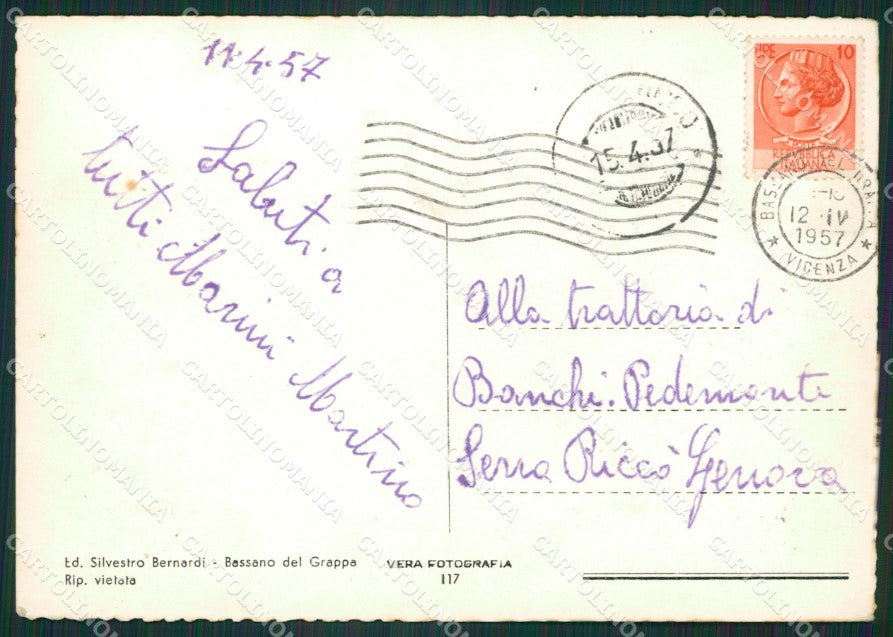 11·4·57
Saluti a
tutti Marini Martino
LIRE 10
REPVBBLICA
ITALIANA
15.4.57
BASSANO DEL GRAPPA
12 · IV
1957
★ VICENZA ★
Alla trattoria di
Banchi. Pedemonte
Serra Riccò Genova
Ed. Silvestro Bernardi - Bassano del Grappa
Rip. vietata
VERA FOTOGRAFIA
117
CARTOLINOMANIA